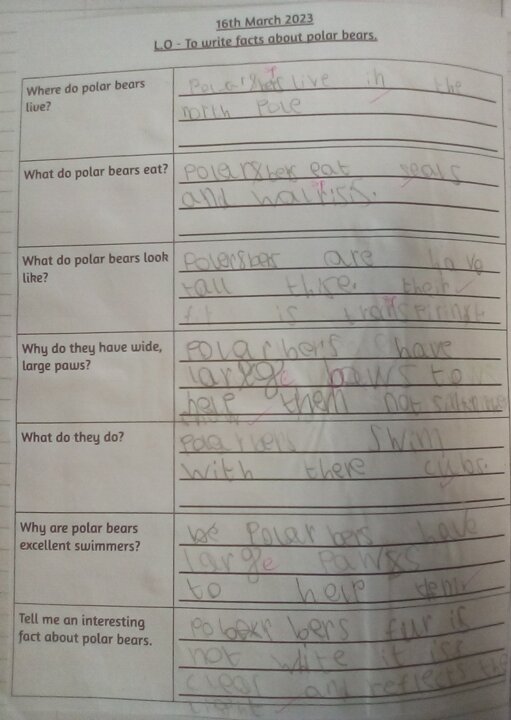 16th March 2023
L.O - To write facts about polar bears.
Where do polar bears
live?
live in the
north Pole
What do polar bears eat?
eat seals
and
What do polar bears look
like?
are have
their
is
Why do they have wide,
large paws?
Polar bers have
large paws to
help them not
What do they do?
Polar bers swim
with there cubs.
Why are polar bears
excellent swimmers?
be Polar bers have
large
to help them
Tell me an interesting
fact about polar bears.
bers fur is
not wite it iss
clear and reflects the
light